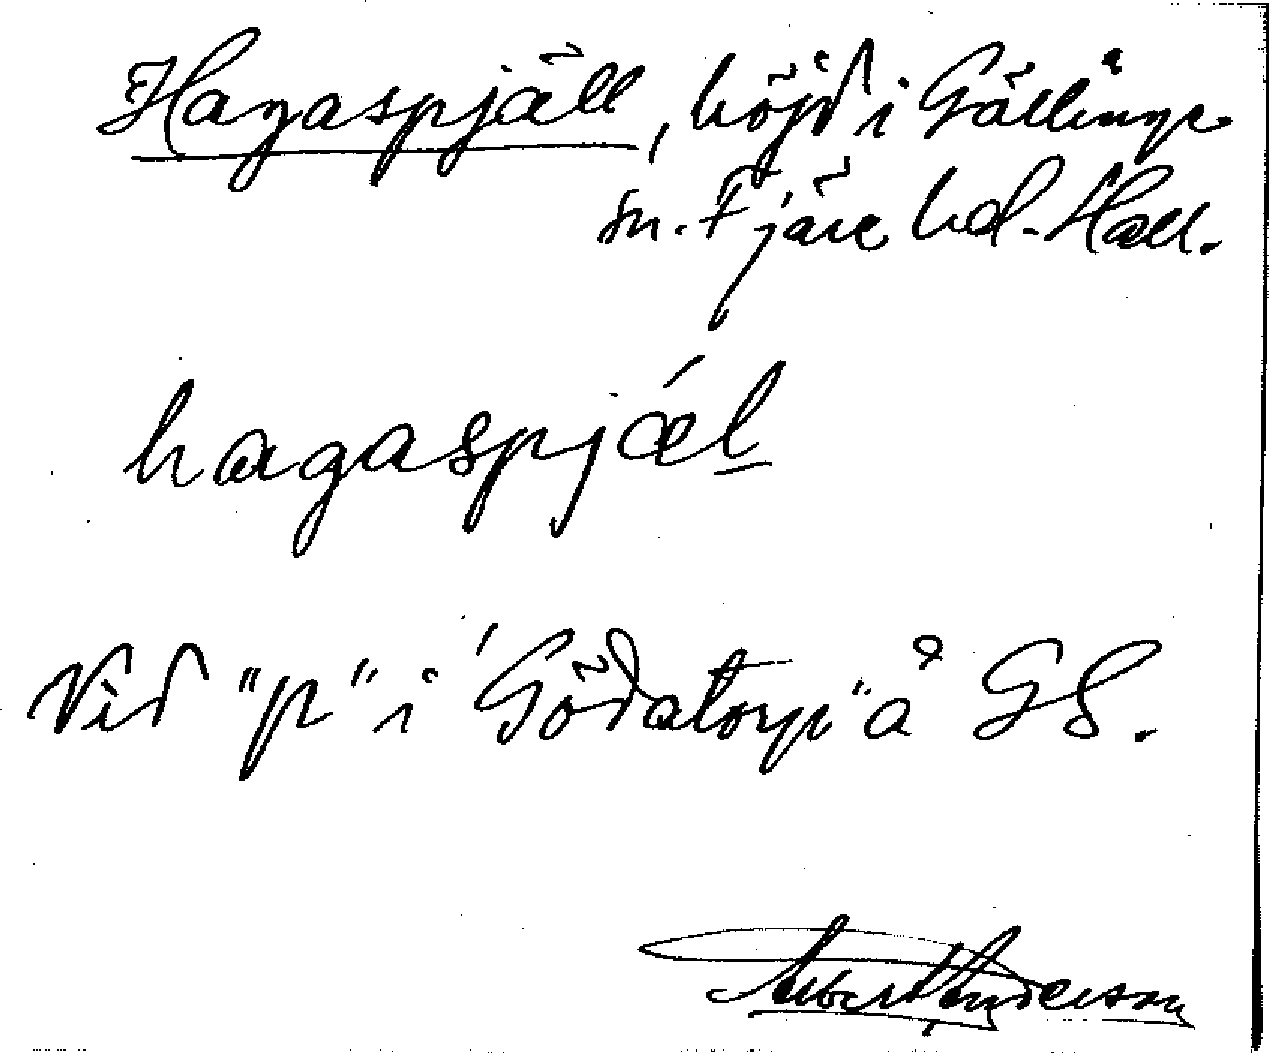 Hagaspjäll, höjd i Gällinge
sn. Fjäre hd. Hall.
hagaspjǽl
Vid "p" i "Gödatorp" å GS.
Albert Andersson